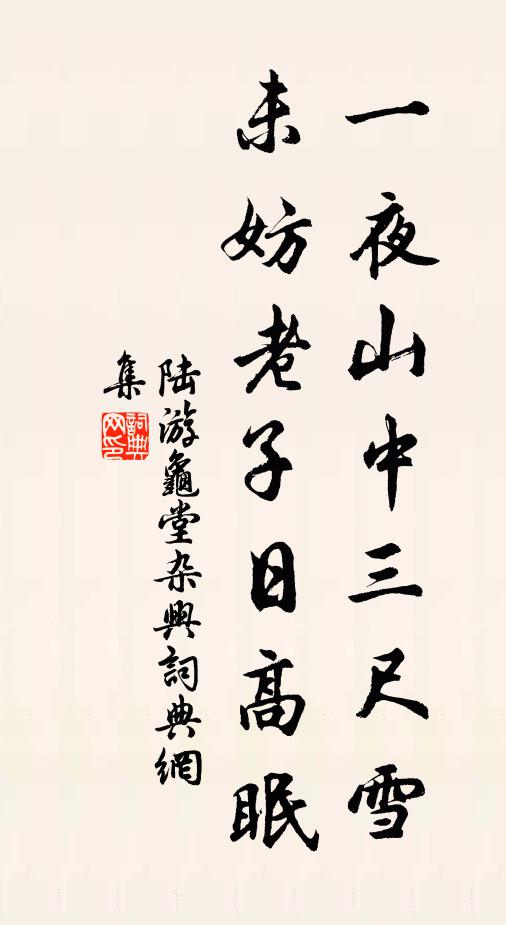 一夜山中三尺雪
未妨老子日高眠
陆游龜堂杂興詞典網
集
詞典
网印